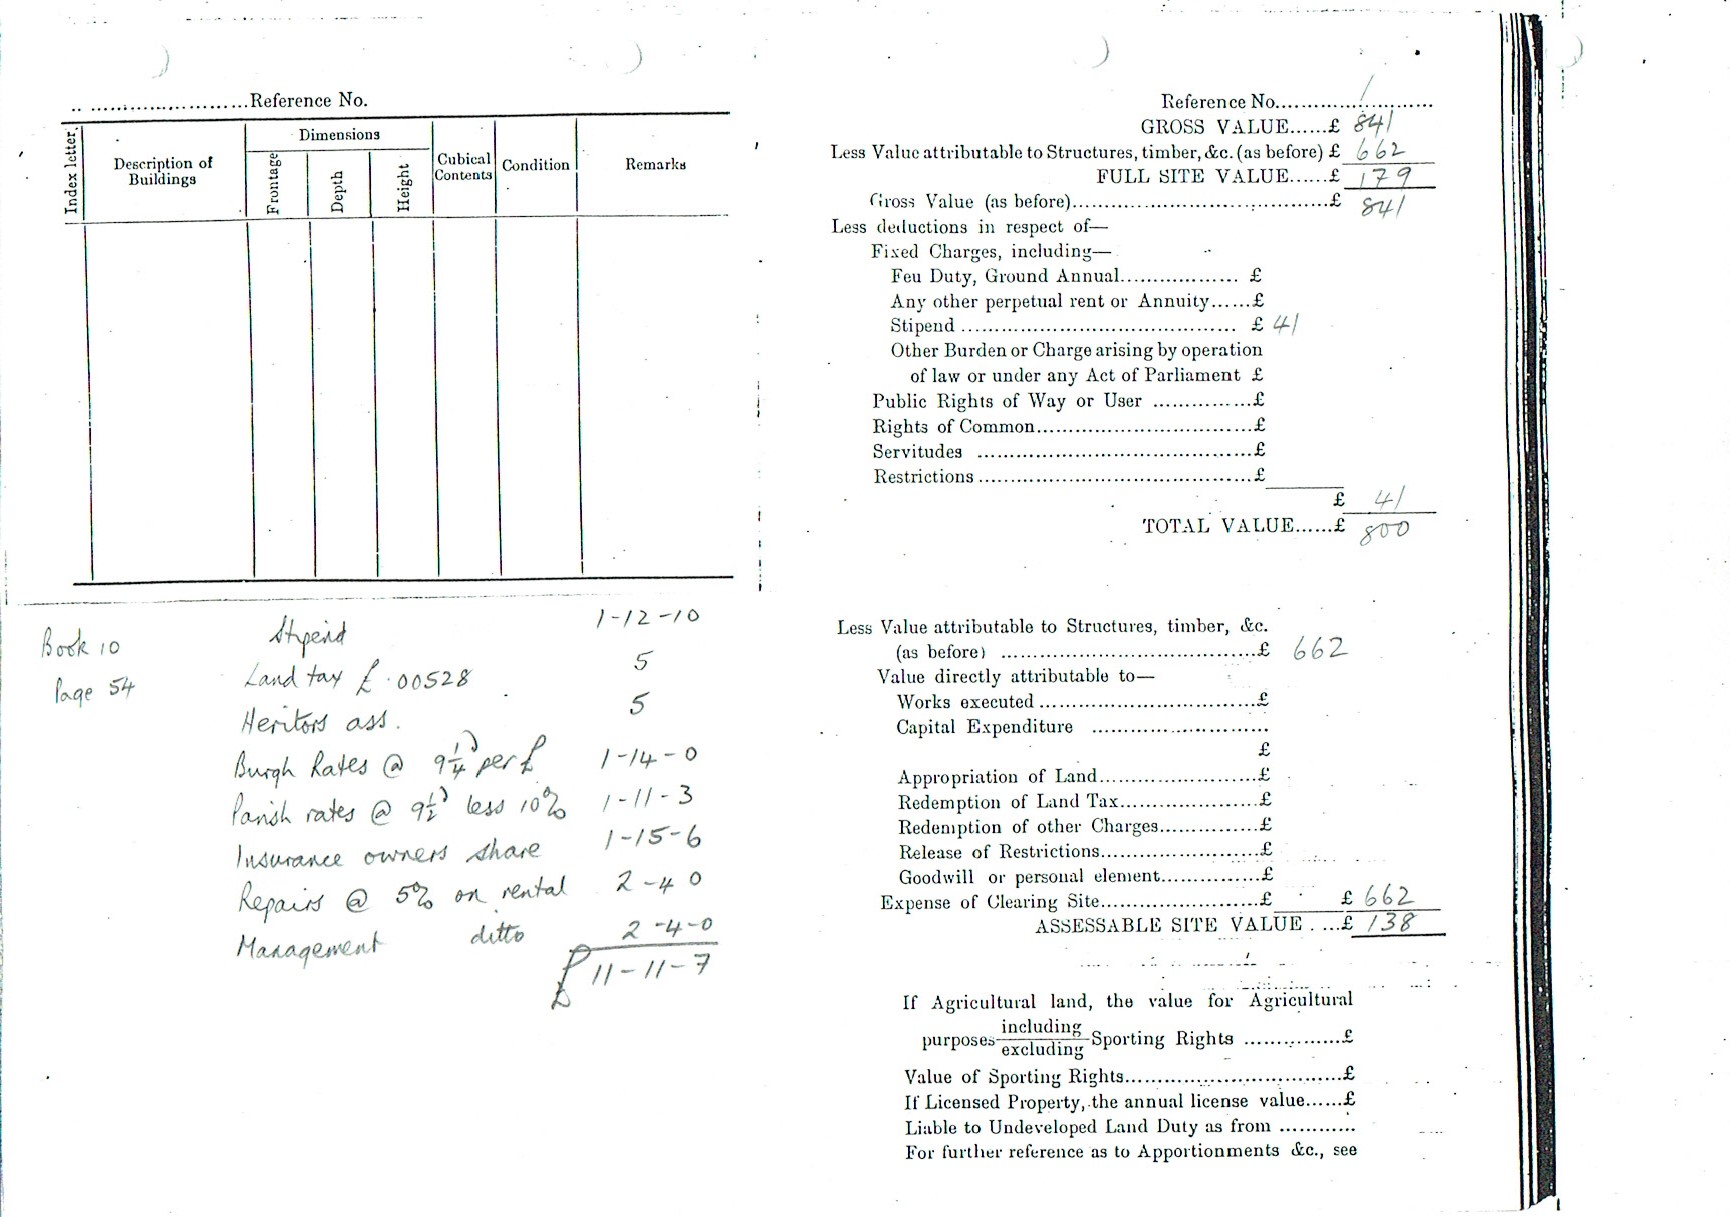 Reference No.
Index letter.
Description of Buildings
Dimensions
Frontage
Depth
Height
Cubical Contents
Condition
Remarks
Book 10
Page 54
Stipend 1-12-10
Land tax £ .00528 5
Heritors ass. 5
Burgh Rates @ 9¼d per £ 1-14-0
Parish rates @ 9½d less 10% 1-11-3
Insurance owners share 1-15-6
Repairs @ 5% on rental 2-4 0
Management ditto 2-4-0
£ 11-11-7
Reference No. 1
GROSS VALUE......£ 841
Less Value attributable to Structures, timber, &c. (as before) £ 662
FULL SITE VALUE......£ 179
Gross Value (as before)........£ 841
Less deductions in respect of—
Fixed Charges, including—
Feu Duty, Ground Annual.................. £
Any other perpetual rent or Annuity......£
Stipend ........................................ £ 41
Other Burden or Charge arising by operation
of law or under any Act of Parliament £
Public Rights of Way or User ...............£
Rights of Common.................................£
Servitudes ..........................................£
Restrictions ..........................................£
£ 41
TOTAL VALUE......£ 800
Less Value attributable to Structures, timber, &c.
(as before) .......................................£ 662
Value directly attributable to—
Works executed .................................£
Capital Expenditure ...........................
£
Appropriation of Land........................£
Redemption of Land Tax.....................£
Redemption of other Charges...............£
Release of Restrictions........................£
Goodwill or personal element...............£
Expense of Clearing Site........................£ £ 662
ASSESSABLE SITE VALUE ....£ 138
If Agricultural land, the value for Agricultural
purposes including/excluding Sporting Rights ...............£
Value of Sporting Rights.................................£
If Licensed Property, the annual license value......£
Liable to Undeveloped Land Duty as from ............
For further reference as to Apportionments &c., see